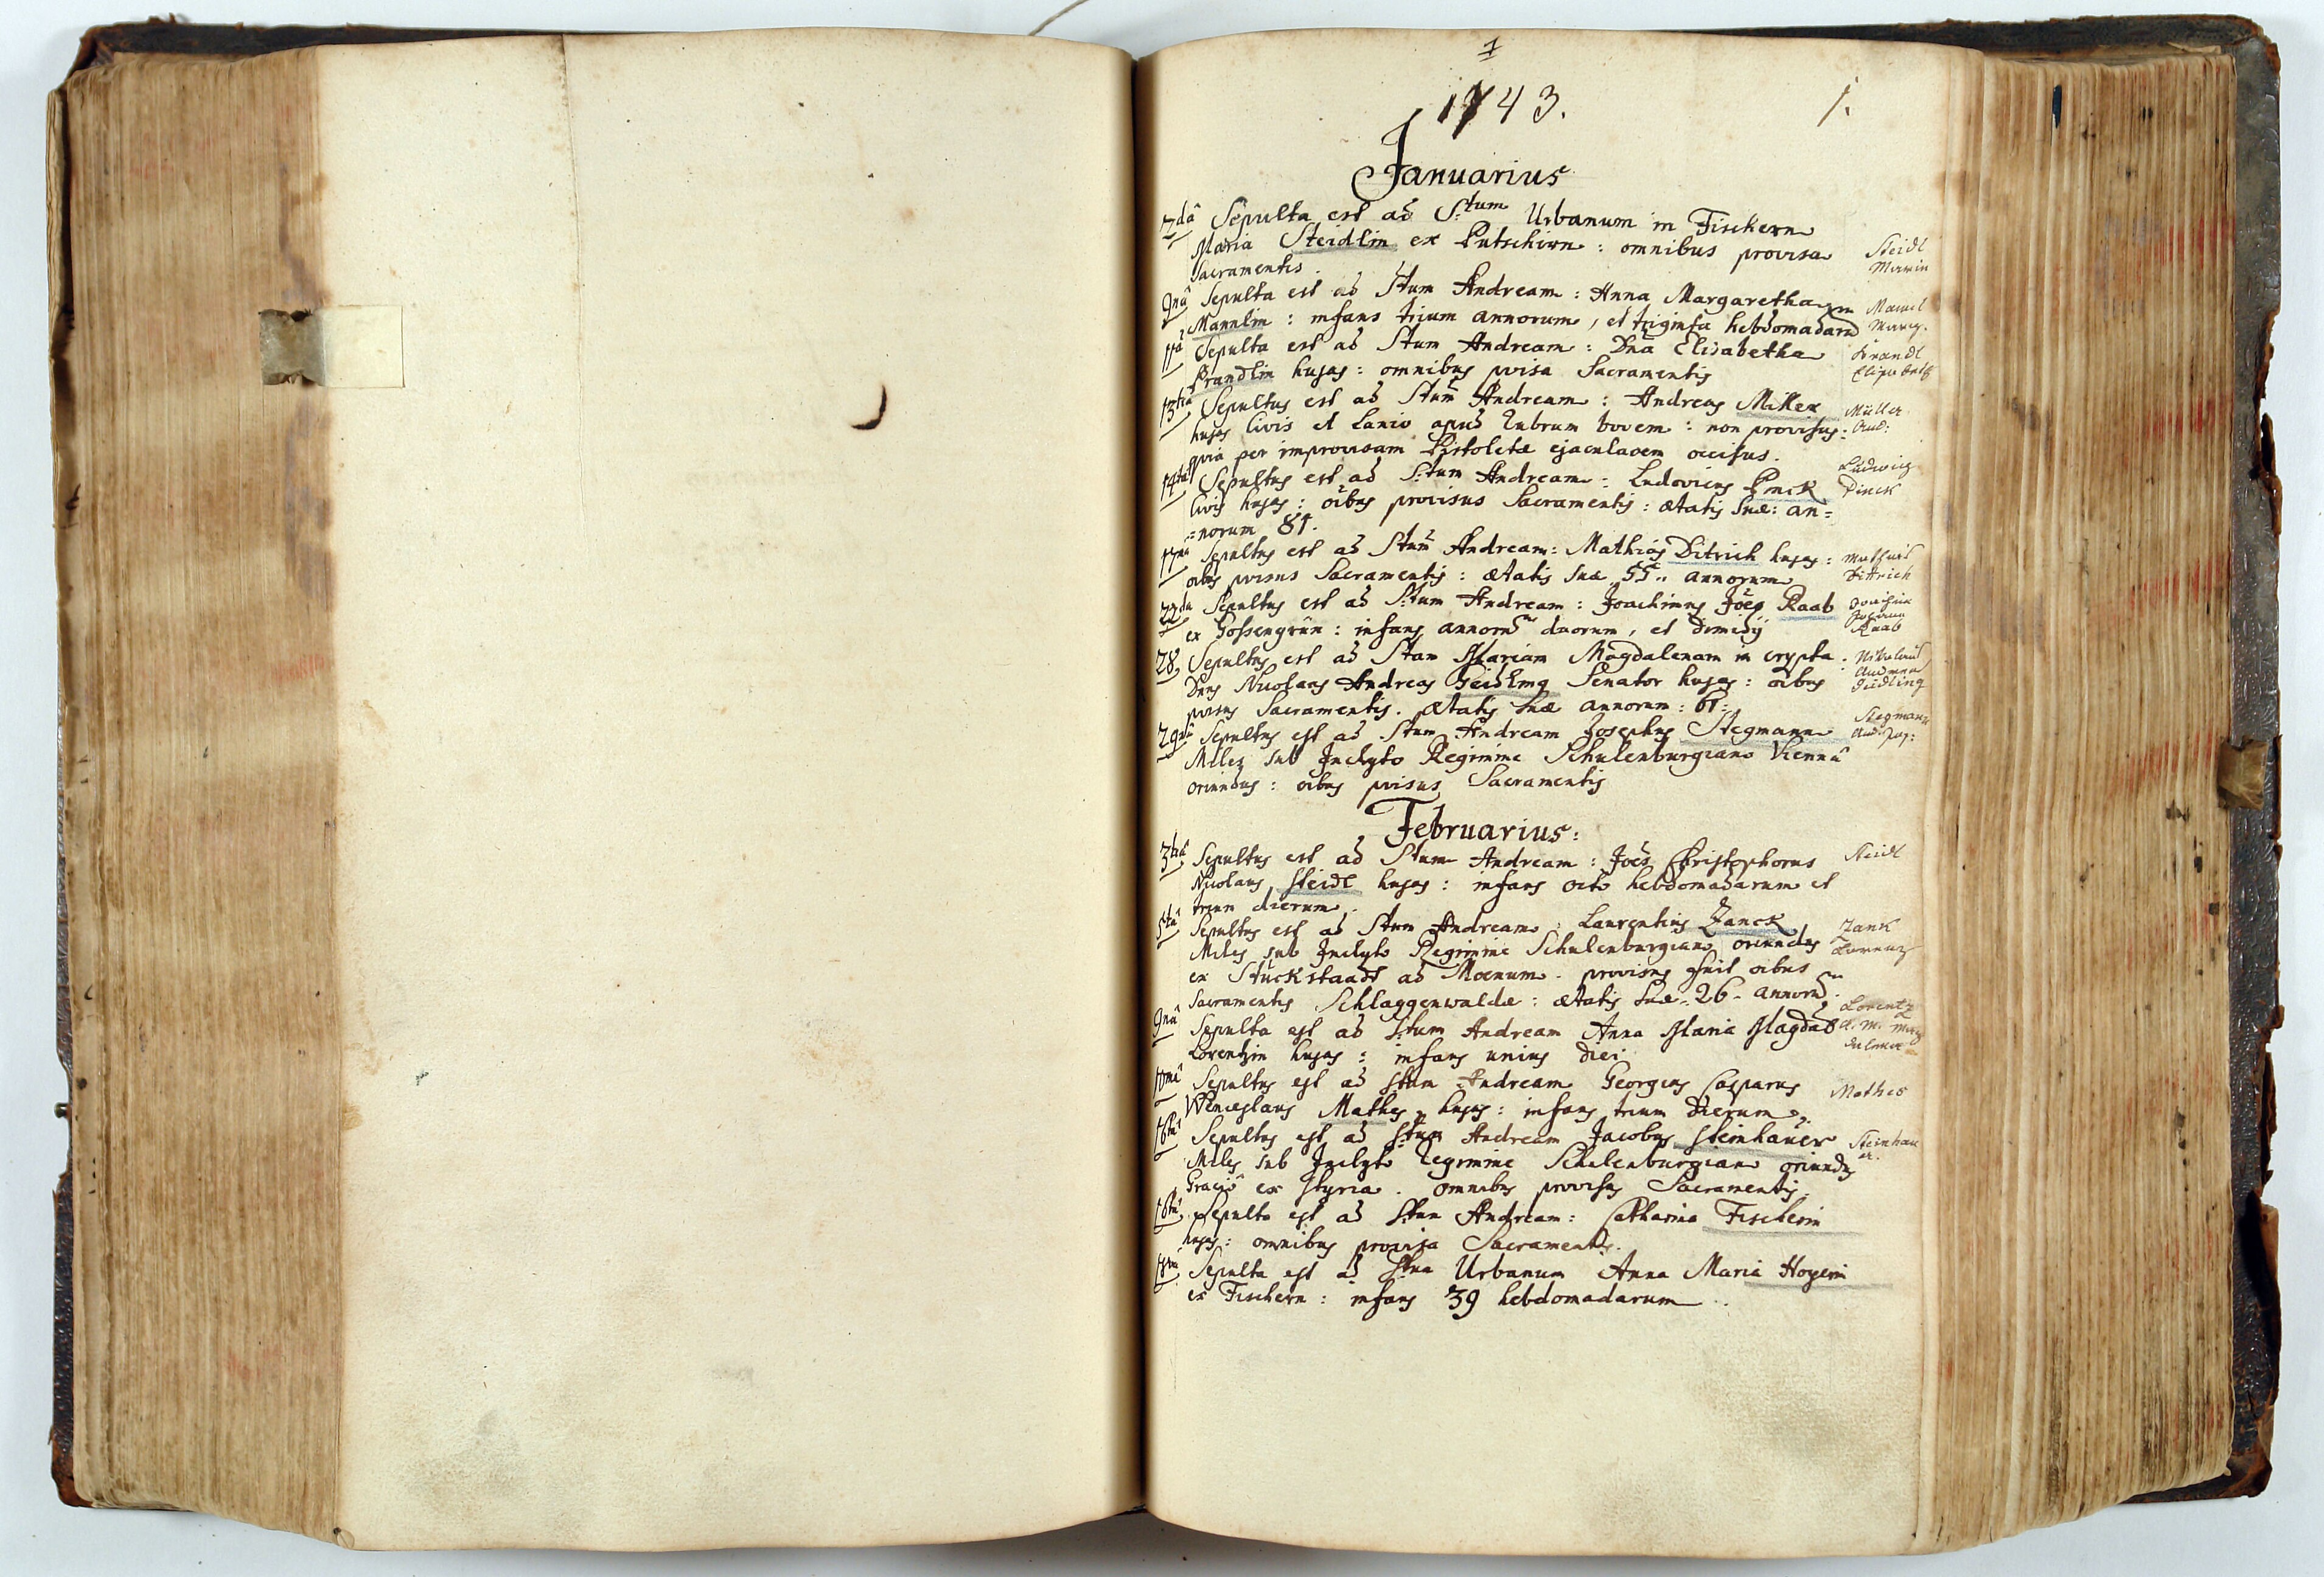 1
1743.
1.
Januarius
7dâ Sepulta est ad S:tum Urbanum in Fischern
Maria Steidlin ex Putschirn: omnibus provisa
Steidl
Marin
Sacramentis.
9nâ Sepulta est ad Stum Andream: Anna Margaretha
Mannlin: infans trium annorum, et triginta hebdomadarum
Marg.
11â Sepulta est ad Stum Andream: Dna Elisabetha
Brandl
Brandlin hujas: omnibus pvisa Sacramentis
Elisabeth
13tiâ Sepultus est ad Stum Andream: Andreas Miller
Müller
hujas Civis et Lanio apud Rubrum bovem: non provisus:
And:
quia per improvisam Pistoletæ ejaculaoem occisus.
14tâ Sepultus est ad S:tum Andream: Ludovicus Pinck
Ludwig
Pinck
Civis hujas: oibus provisus Sacramentis: ætatis suæ: an=
=norum 81.
17mâ Sepultus est ad Stum Andream: Mathias Ditrich hujas:
Mathias
Dittrich
oibus pvisus Sacramentis: ætatis suæ 55.. annorum
22da Sepultus est ad S:tum Andream: Joachimus Joës Raab
Joachim
Raab
ex Gossengrün: infans annorum duorum, et dimedij
28 Sepultus est ad Stam Mariam Magdalenam in crypta.
Dnus Nicolaus Andreas Geidling Senator hujas: oibus
Andreas
Geidling
pvisus Sacramentis. ætatis suæ annorum: 61:
29nâ Sepultus est ad Stum Andream Josephus Stegmann
Stegmann
Miles sub Inclyto Regimine Schulenburgiano Viennâ
oriundus: oibus pvisus Sacramentis
Februarius:
3tiâ Sepultus est ad Stum Andream: Joës Christophorus
Steidl
Nicolaus Steidl hujas: infans octo hebdomadarum et
trium dierum.
5tâ Sepultus est ad Stum Andream: Laurentius Zanck
Zank
Lorenz
Miles sub Inclyto Regimine Schulenburgiano oriundus
ex Stuckstaadt ad Moenum. provisus fuit oibus
Sacramentis Schlaggenwaldæ: ætatis suæ. 26. annorum.
9nâ Sepulta est ad Stum Andream Anna Maria Magdal
Lorentz
Lorentzin hujas: infans unius diei
10mâ Sepultus est ad Stum Andream Georgius Casparus
Mathes
Wenceslaus Mathes hujas: infans trium dierum.
16tâ Sepultus est ad Stum Andream Jacobus Steinhauer
Steinhau
er.
Miles sub Inclyto Regimine Schulenburgiano oriundus
Graciô ex Styria. omnibus provisus Sacramentis.
16tâ Sepulta est ad Stum Andream: Catharina Fischerin
hujas: omnibus provisa Sacramentis.
18vâ Sepulta est ad Stum Urbanum Anna Maria Hoyerin
ex Fischern: infans 39 hebdomadarum.